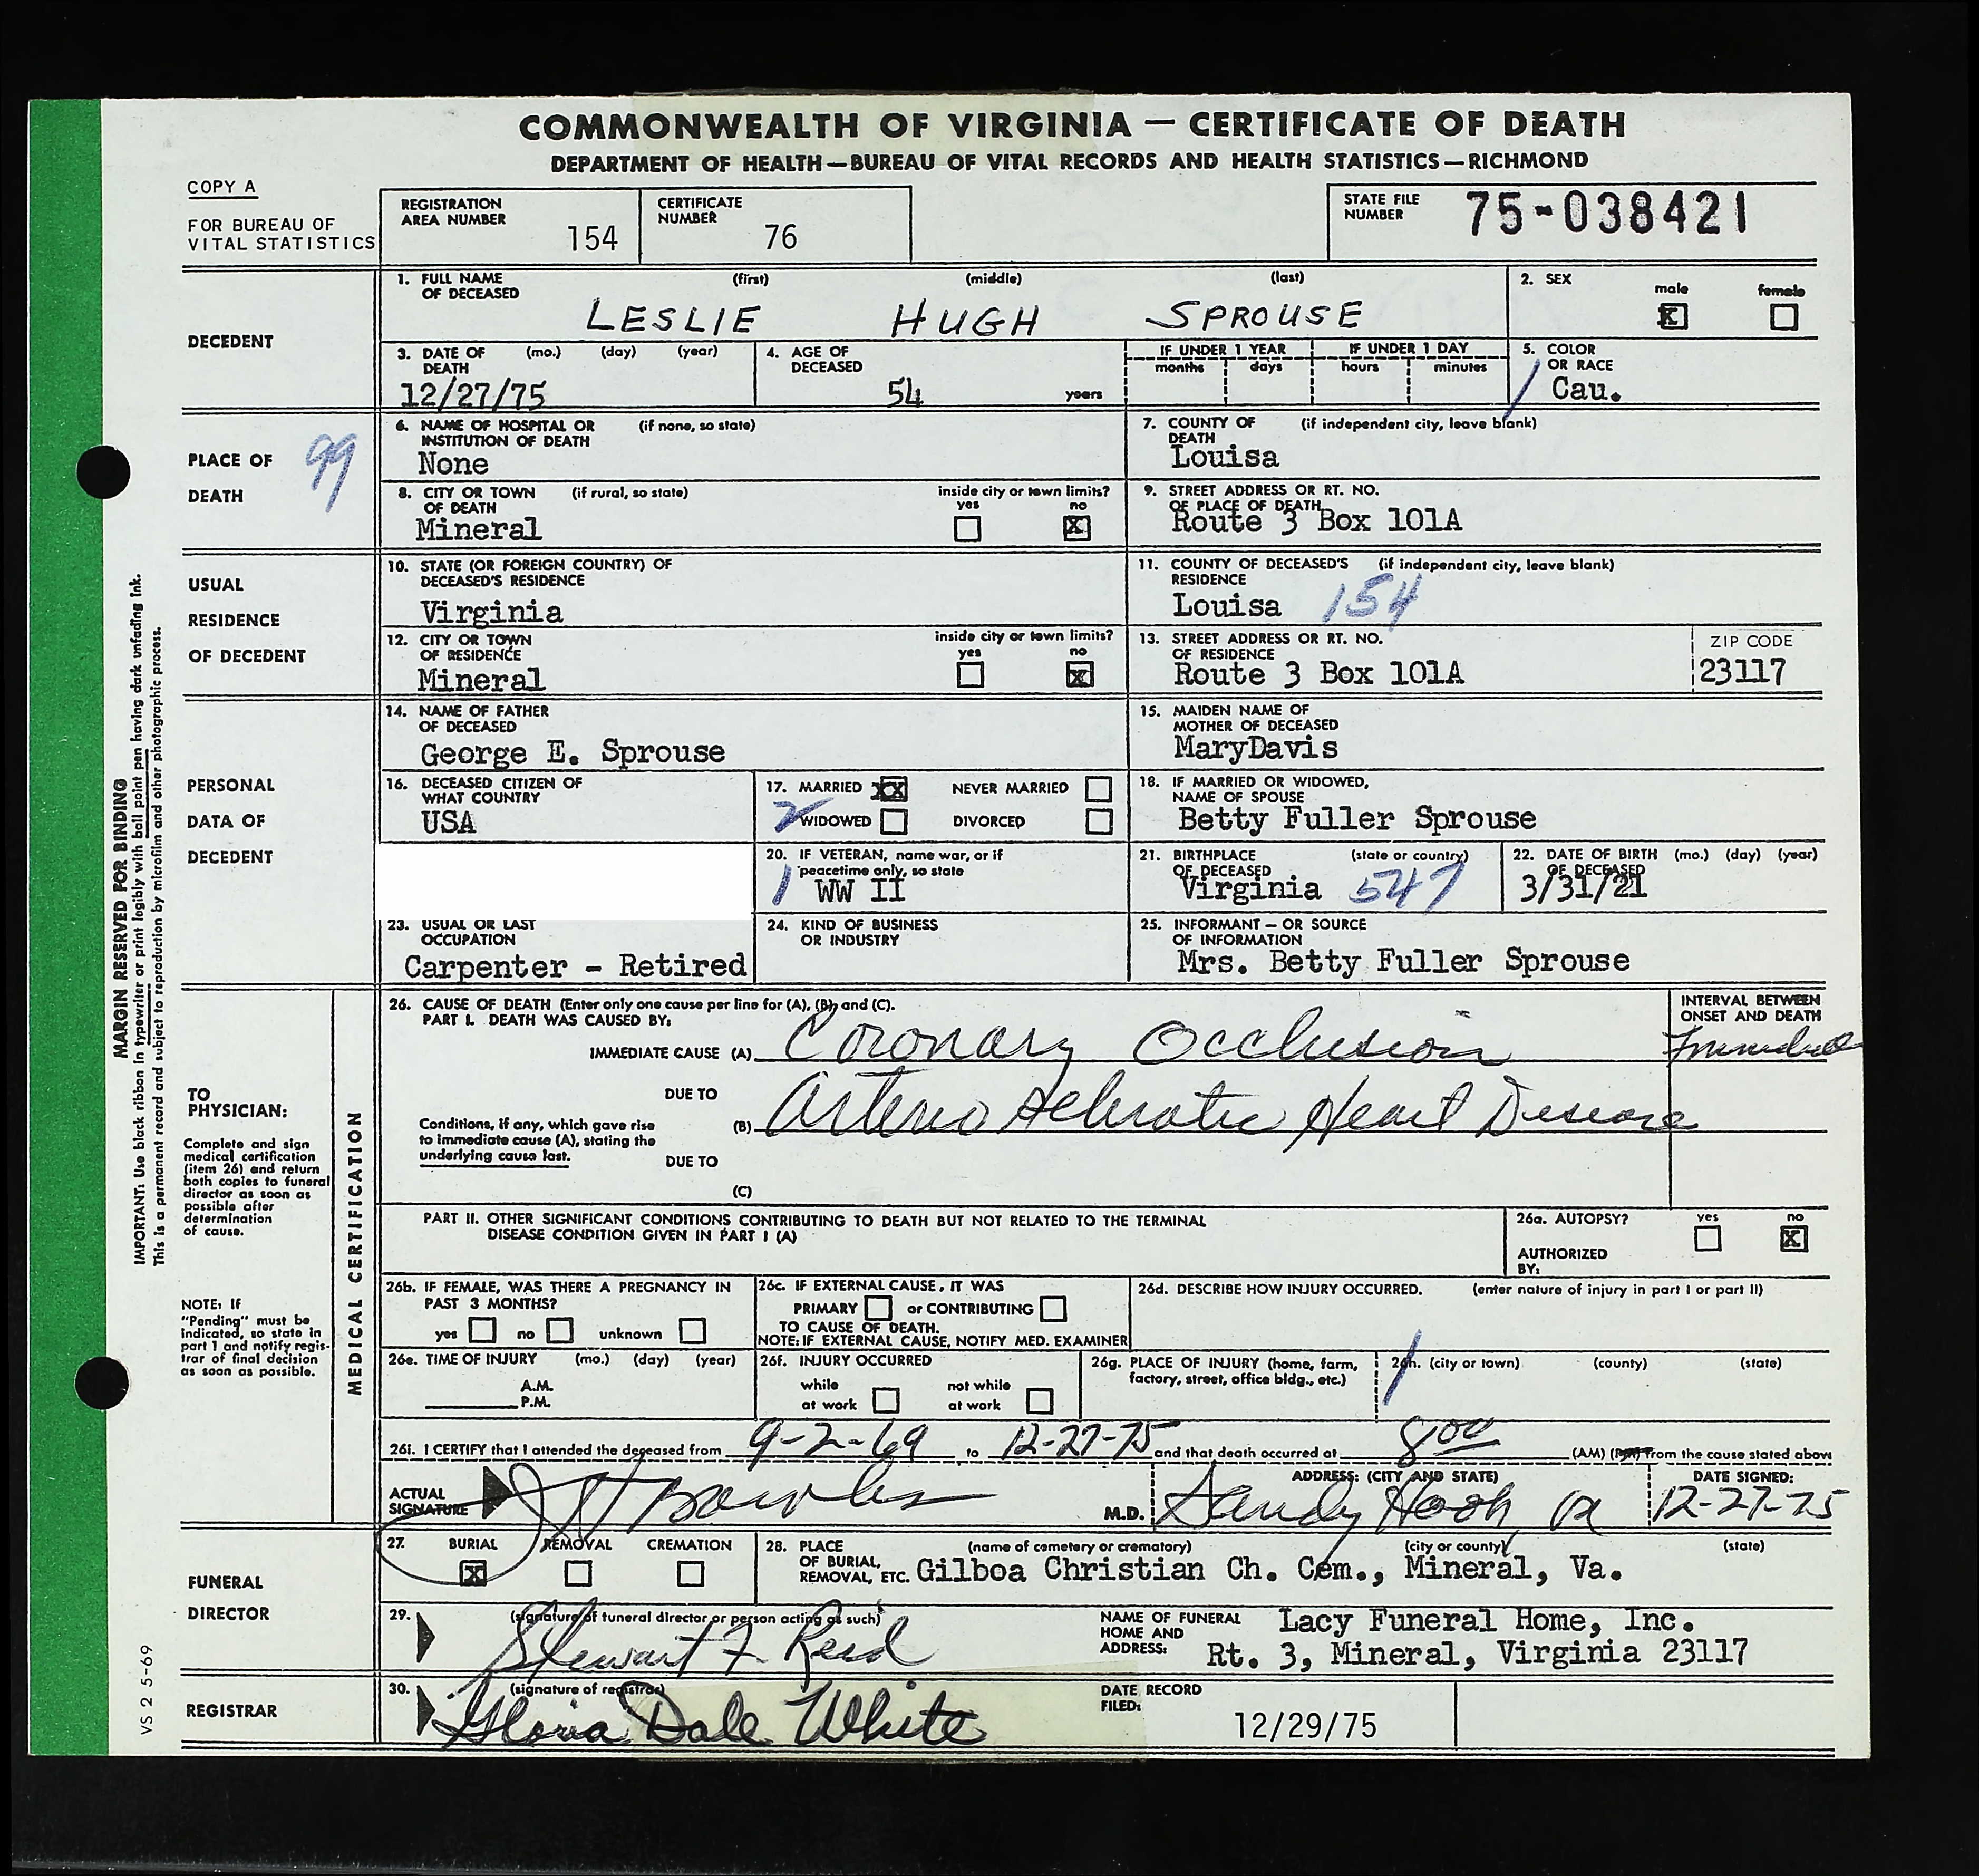 COMMONWEALTH OF VIRGINIA — CERTIFICATE OF DEATH
DEPARTMENT OF HEALTH—BUREAU OF VITAL RECORDS AND HEALTH STATISTICS—RICHMOND
COPY A
FOR BUREAU OF
VITAL STATISTICS
REGISTRATION
AREA NUMBER
154
CERTIFICATE
NUMBER
76
STATE FILE
NUMBER
75-038421
DECEDENT
1. FULL NAME
OF DECEASED
(first) (middle) (last)
LESLIE HUGH SPROUSE
2. SEX
male female
X
3. DATE OF (mo.) (day) (year)
DEATH
12/27/75
4. AGE OF
DECEASED
54 years
IF UNDER 1 YEAR
months days
IF UNDER 1 DAY
hours minutes
5. COLOR
OR RACE
Cau.
PLACE OF
DEATH
99
6. NAME OF HOSPITAL OR (if none, so state)
INSTITUTION OF DEATH
None
7. COUNTY OF (if independent city, leave blank)
DEATH
Louisa
8. CITY OR TOWN (if rural, so state)
OF DEATH
Mineral
inside city or town limits?
yes no
X
9. STREET ADDRESS OR RT. NO.
OF PLACE OF DEATH
Route 3 Box 101A
USUAL
RESIDENCE
OF DECEDENT
10. STATE (OR FOREIGN COUNTRY) OF
DECEASED'S RESIDENCE
Virginia
11. COUNTY OF DECEASED'S (if independent city, leave blank)
RESIDENCE
Louisa 154
12. CITY OR TOWN
OF RESIDENCE
Mineral
inside city or town limits?
yes no
X
13. STREET ADDRESS OR RT. NO.
OF RESIDENCE
Route 3 Box 101A
ZIP CODE
23117
PERSONAL
DATA OF
DECEDENT
14. NAME OF FATHER
OF DECEASED
George E. Sprouse
15. MAIDEN NAME OF
MOTHER OF DECEASED
MaryDavis
16. DECEASED CITIZEN OF
WHAT COUNTRY
USA
17. MARRIED XX NEVER MARRIED
2 WIDOWED DIVORCED
18. IF MARRIED OR WIDOWED,
NAME OF SPOUSE
Betty Fuller Sprouse
20. IF VETERAN, name war, or if
peacetime only, so state
1 WW II
21. BIRTHPLACE (state or country)
OF DECEASED
Virginia 547
22. DATE OF BIRTH (mo.) (day) (year)
OF DECEASED
3/31/21
23. USUAL OR LAST
OCCUPATION
Carpenter - Retired
24. KIND OF BUSINESS
OR INDUSTRY
25. INFORMANT — OR SOURCE
OF INFORMATION
Mrs. Betty Fuller Sprouse
MARGIN RESERVED FOR BINDING
IMPORTANT: Use black ribbon in typewriter or print legibly with ball point pen having dark unfading ink.
This is a permanent record and subject to reproduction by microfilm and other photographic process.
TO
PHYSICIAN:
Complete and sign
medical certification
(item 26) and return
both copies to funeral
director as soon as
possible after
determination
of cause.
NOTE: IF
"Pending" must be
indicated, so state in
part 1 and notify regis-
trar of final decision
as soon as possible.
MEDICAL CERTIFICATION
26. CAUSE OF DEATH (Enter only one cause per line for (A), (B), and (C).
PART I. DEATH WAS CAUSED BY:
INTERVAL BETWEEN
ONSET AND DEATH
IMMEDIATE CAUSE (A) Coronary Occlusion
DUE TO
Conditions, if any, which gave rise
to immediate cause (A), stating the
underlying cause last.
(B) Arterio Sclerotic Heart Disease
DUE TO
(C)
PART II. OTHER SIGNIFICANT CONDITIONS CONTRIBUTING TO DEATH BUT NOT RELATED TO THE TERMINAL
DISEASE CONDITION GIVEN IN PART I (A)
26a. AUTOPSY? yes no
X
AUTHORIZED
BY:
26b. IF FEMALE, WAS THERE A PREGNANCY IN
PAST 3 MONTHS?
yes no unknown
26c. IF EXTERNAL CAUSE, IT WAS
PRIMARY or CONTRIBUTING
TO CAUSE OF DEATH.
NOTE: IF EXTERNAL CAUSE, NOTIFY MED. EXAMINER
26d. DESCRIBE HOW INJURY OCCURRED. (enter nature of injury in part I or part II)
26e. TIME OF INJURY (mo.) (day) (year)
A.M.
P.M.
26f. INJURY OCCURRED
while not while
at work at work
26g. PLACE OF INJURY (home, farm,
factory, street, office bldg., etc.)
26h. (city or town) (county) (state)
26i. I CERTIFY that I attended the deceased from 9-2-69 to 12-27-75 and that death occurred at 8 00 (AM) (PM) from the cause stated above
ACTUAL
SIGNATURE
M.D.
ADDRESS: (CITY AND STATE)
Sandy Hook, Va
DATE SIGNED:
12-27-75
FUNERAL
DIRECTOR
27. BURIAL REMOVAL CREMATION
X
28. PLACE (name of cemetery or crematory) (city or county) (state)
OF BURIAL,
REMOVAL, ETC. Gilboa Christian Ch. Cem., Mineral, Va.
29. (signature of funeral director or person acting as such)
Stewart F. Reid
NAME OF FUNERAL
HOME AND
ADDRESS:
Lacy Funeral Home, Inc.
Rt. 3, Mineral, Virginia 23117
REGISTRAR
30. (signature of registrar)
Gloria Dale White
DATE RECORD
FILED:
12/29/75
VS 2 5-69